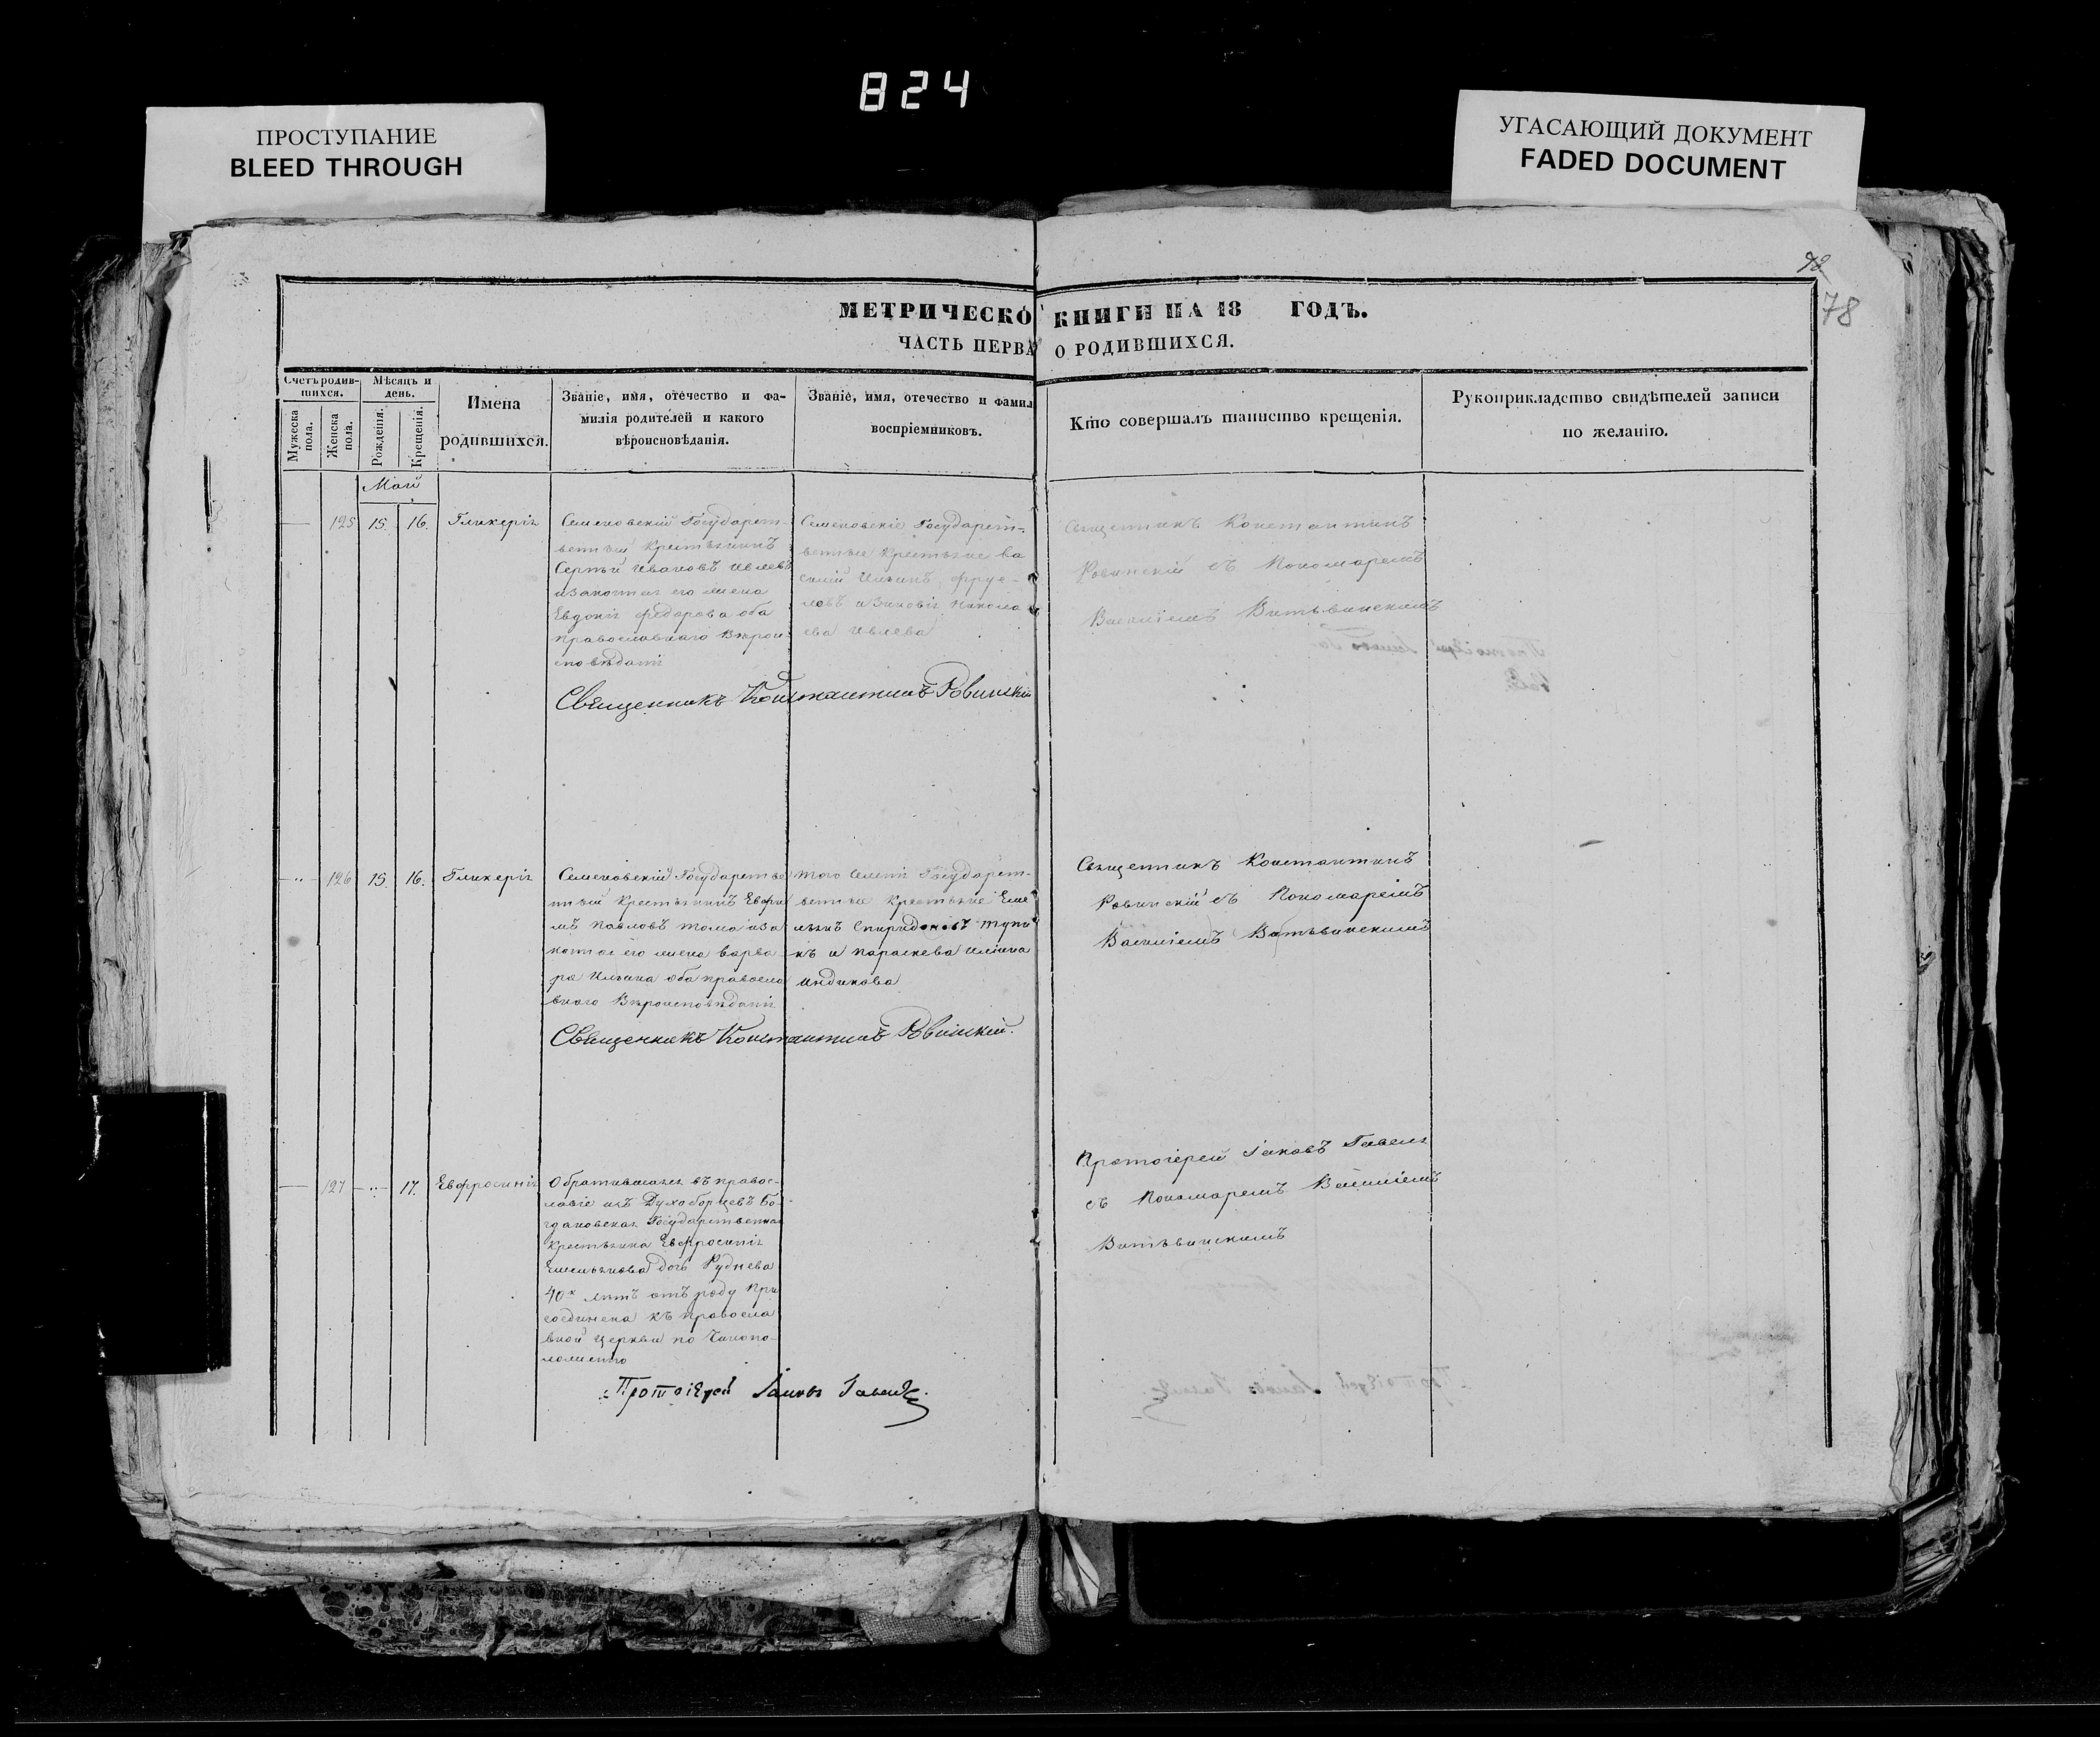 824
ПРОСТУПАНИЕ
BLEED THROUGH
УГАСАЮЩИЙ ДОКУМЕНТ
FADED DOCUMENT
78
78
МЕТРИЧЕСКО КНИГИ НА 18 ГОДЪ.
ЧАСТЬ ПЕРВА О РОДИВШИХСЯ.
Счетъ родив-
шихся.
Мужеска пола.
Женска пола.
Мѣсяцъ и
день.
Рожденія.
Крещенія.
Имена
родившихся.
Званіе, имя, отечество и фа-
милія родителей и какого
вѣроисповѣданія.
Званіе, имя, отечество и фамил
воспріемниковъ.
Кто совершалъ таинство крещенія.
Рукоприкладство свидѣтелей записи
по желанію.
Май
125 15. 16. Гликерія
Семеновскій Государст-
венный Крестьянинъ
Сергѣй Ивановъ Ивлевъ
изаконная его жена
Евдокія Федорова оба
православнаго Вѣрои-
сповѣданія
Семеновскіе Государст-
венные Крестьяне Ва
силій Ильинъ
изиновія Никола
ева Ивлева
Священникъ Константинъ
Ровинскій съ Пономаремъ
Василіемъ Витвинскимъ
Священникъ Константинъ Ровинскій
126 15. 16. Гликерія
Семеновскій Государстве
нный Крестьянинъ Ефи
мъ Павловъ иза
конная его жена Варва
ра Ильина оба правосла
внаго Вѣроисповѣданія
того Селенія Государст-
венные Крестьяне Еме
льянъ Спиридоновъ
къ и Параскева Ильина
Индикова
Священникъ Константинъ
Ровинскій съ Пономаремъ
Василіемъ Витвинскимъ
Священникъ Константинъ Ровинскій.
127 17. Евфросинія
Обратившаяся въ правос-
лавіе изъ Духоборцевъ Бо-
гдановская Государственная
Крестьянка Евфросинія
Емельянова дочь Руднева
40х лѣтъ отъ роду при
соединена къ правосла
вной Церкви по Чинопо-
ложенію
Протоіерей Іаковъ
съ Пономаремъ Василіемъ
Витвинскимъ
Протоіерей Іаковъ